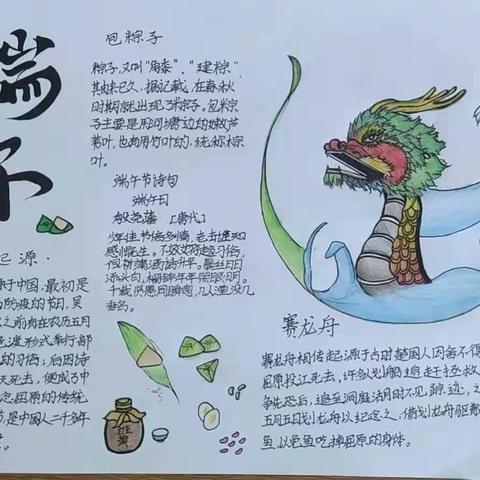 端午
起源·
源于中国,最初是
防疫的节日,吴
之前有在农历五月
渡形式举行部
的习俗;后因诗
天死去,便成了中
念屈原的传统
节,是中国人二千多年
包粽子
粽子,又叫"角黍"、"建粽",
其由来已久,据记载,在春秋
时期就出现了粽子。包粽
子主要是用河塘边的嫩芦
苇叶,也有用竹叶的,统称粽
叶。
端午节诗句
端午日
殷尧藩 [唐代]
少年佳节倍多情,老去谁知
感慨生。不效艾符趋习俗,
但祈蒲酒话升平。鬓丝日日
添白头,榴锦年年照眼明。
千载贤愚同瞬息,几人湮没几
垂名。
雄黄
赛龙舟
赛龙舟相传起源于古时楚国人因舍不得
屈原投江死去,许多人划船追赶拯救
争先恐后,追至洞庭湖时不见踪迹,之
五月五日划龙舟以纪念之。借划龙舟驱散
鱼,以免鱼吃掉屈原的身体。